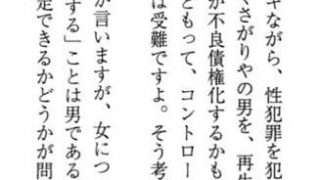 キながら、性犯罪を犯
くさがりやの男を、再生
が不良債権化するかも
ともって、コントロー
は受難ですよ。そう考
が言いますが、女につ
する」ことは男である
定できるかどうかが問